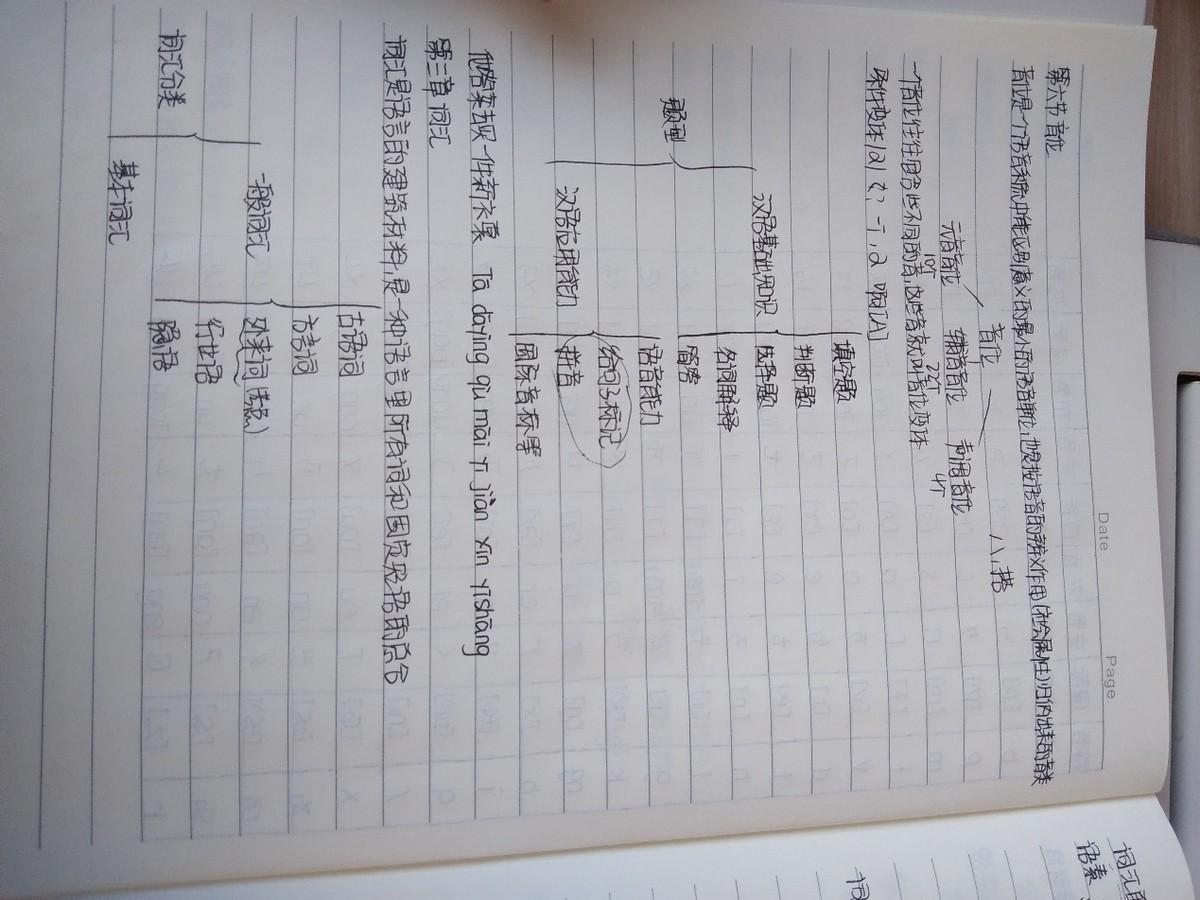 Date
Page
第六节 音位
音位是一个语音系统中能区别意义的最小的语音单位,也是按语音的辨义作用(社会属性)归纳出来的音类
音位
元音音位 辅音音位 声调音位
10个 22个 4个
一个音位往往包含一些不同的音,这些音素就叫音位变体
条件变体
题型
汉语基础知识
填空题
判断题
选择题
名词解释
简答
汉语应用能力
语音能力
给句子标记
拼音
国际音标等
他打算去买一件新衣裳 Tā dǎ suàn qù mǎi yí jiàn xīn yīshāng
第三章 词汇
词汇是语言的建筑材料,是一种语言里所有词和固定短语的总合
词汇分类
一般词汇
古语词
方言词
外来词(借词)
行业语
隐语
基本词汇
语素